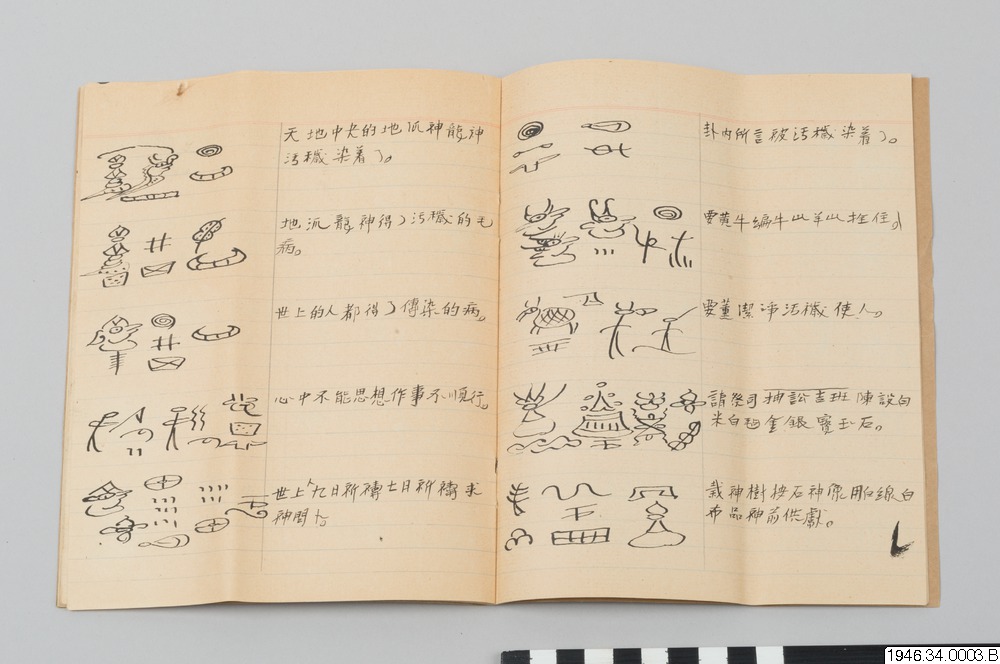 天地中央的地派神龍神
污穢染着了。
地派龍神得了污穢的毛
病。
世上的人都得了傳染的病。
心中不能思想作事不順行。
世上九日祈禱七日祈禱求
神問卜。
卦內所言被污穢染着了。
要黃牛編牛山羊山拴住。
要薰潔淨污穢使人。
請祭司 陳設白
米白 金銀寶玉石。
栽神樹 石神 用白線白
布品神前供獻。
1946.34.0003.B